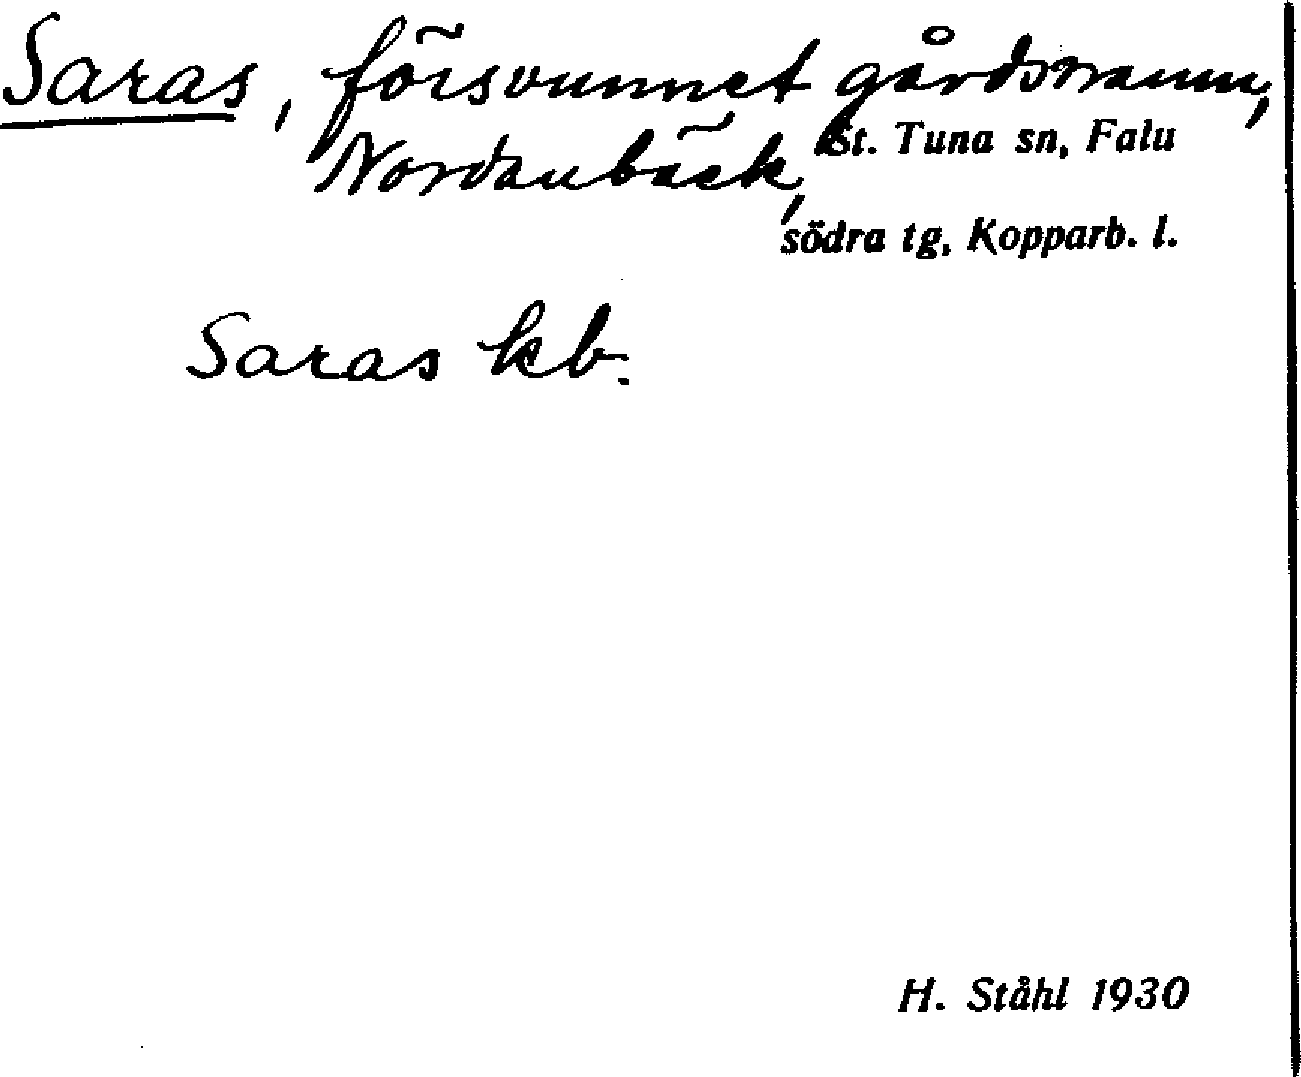 Saras, försvunnet gårdsnamn,
Nordanbäck, St. Tuna sn, Falu
södra tg, Kopparb. l.
Saras kb.
H. Ståhl 1930